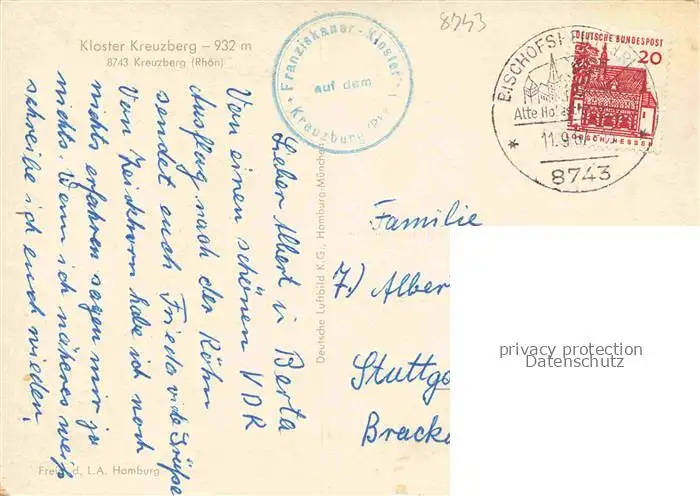 Kloster Kreuzberg – 932 m
8743 Kreuzberg (Rhön)
Franziskaner-Kloster
auf dem
Kreuzberg
8743
BISCHOFSHEIM
Alte Ho
11.9.67
8743
DEUTSCHE BUNDESPOST
20
LORSCH/HESSEN
Lieber Albert u Berta
Von einen schönen VDK
Ausflug nach der Röhn
sendet euch Frieda viele Grüße
Von habe ich noch
nichts erfahren sagen mir ja
nichts. Wenn ich näheres weiß
schreibe ich euch wieder.
Deutsche Luftbild K.G., Hamburg-München
Familie
7.) Alber
Stuttg
Bracke
privacy protection
Datenschutz
Freig. d. L.A. Hamburg